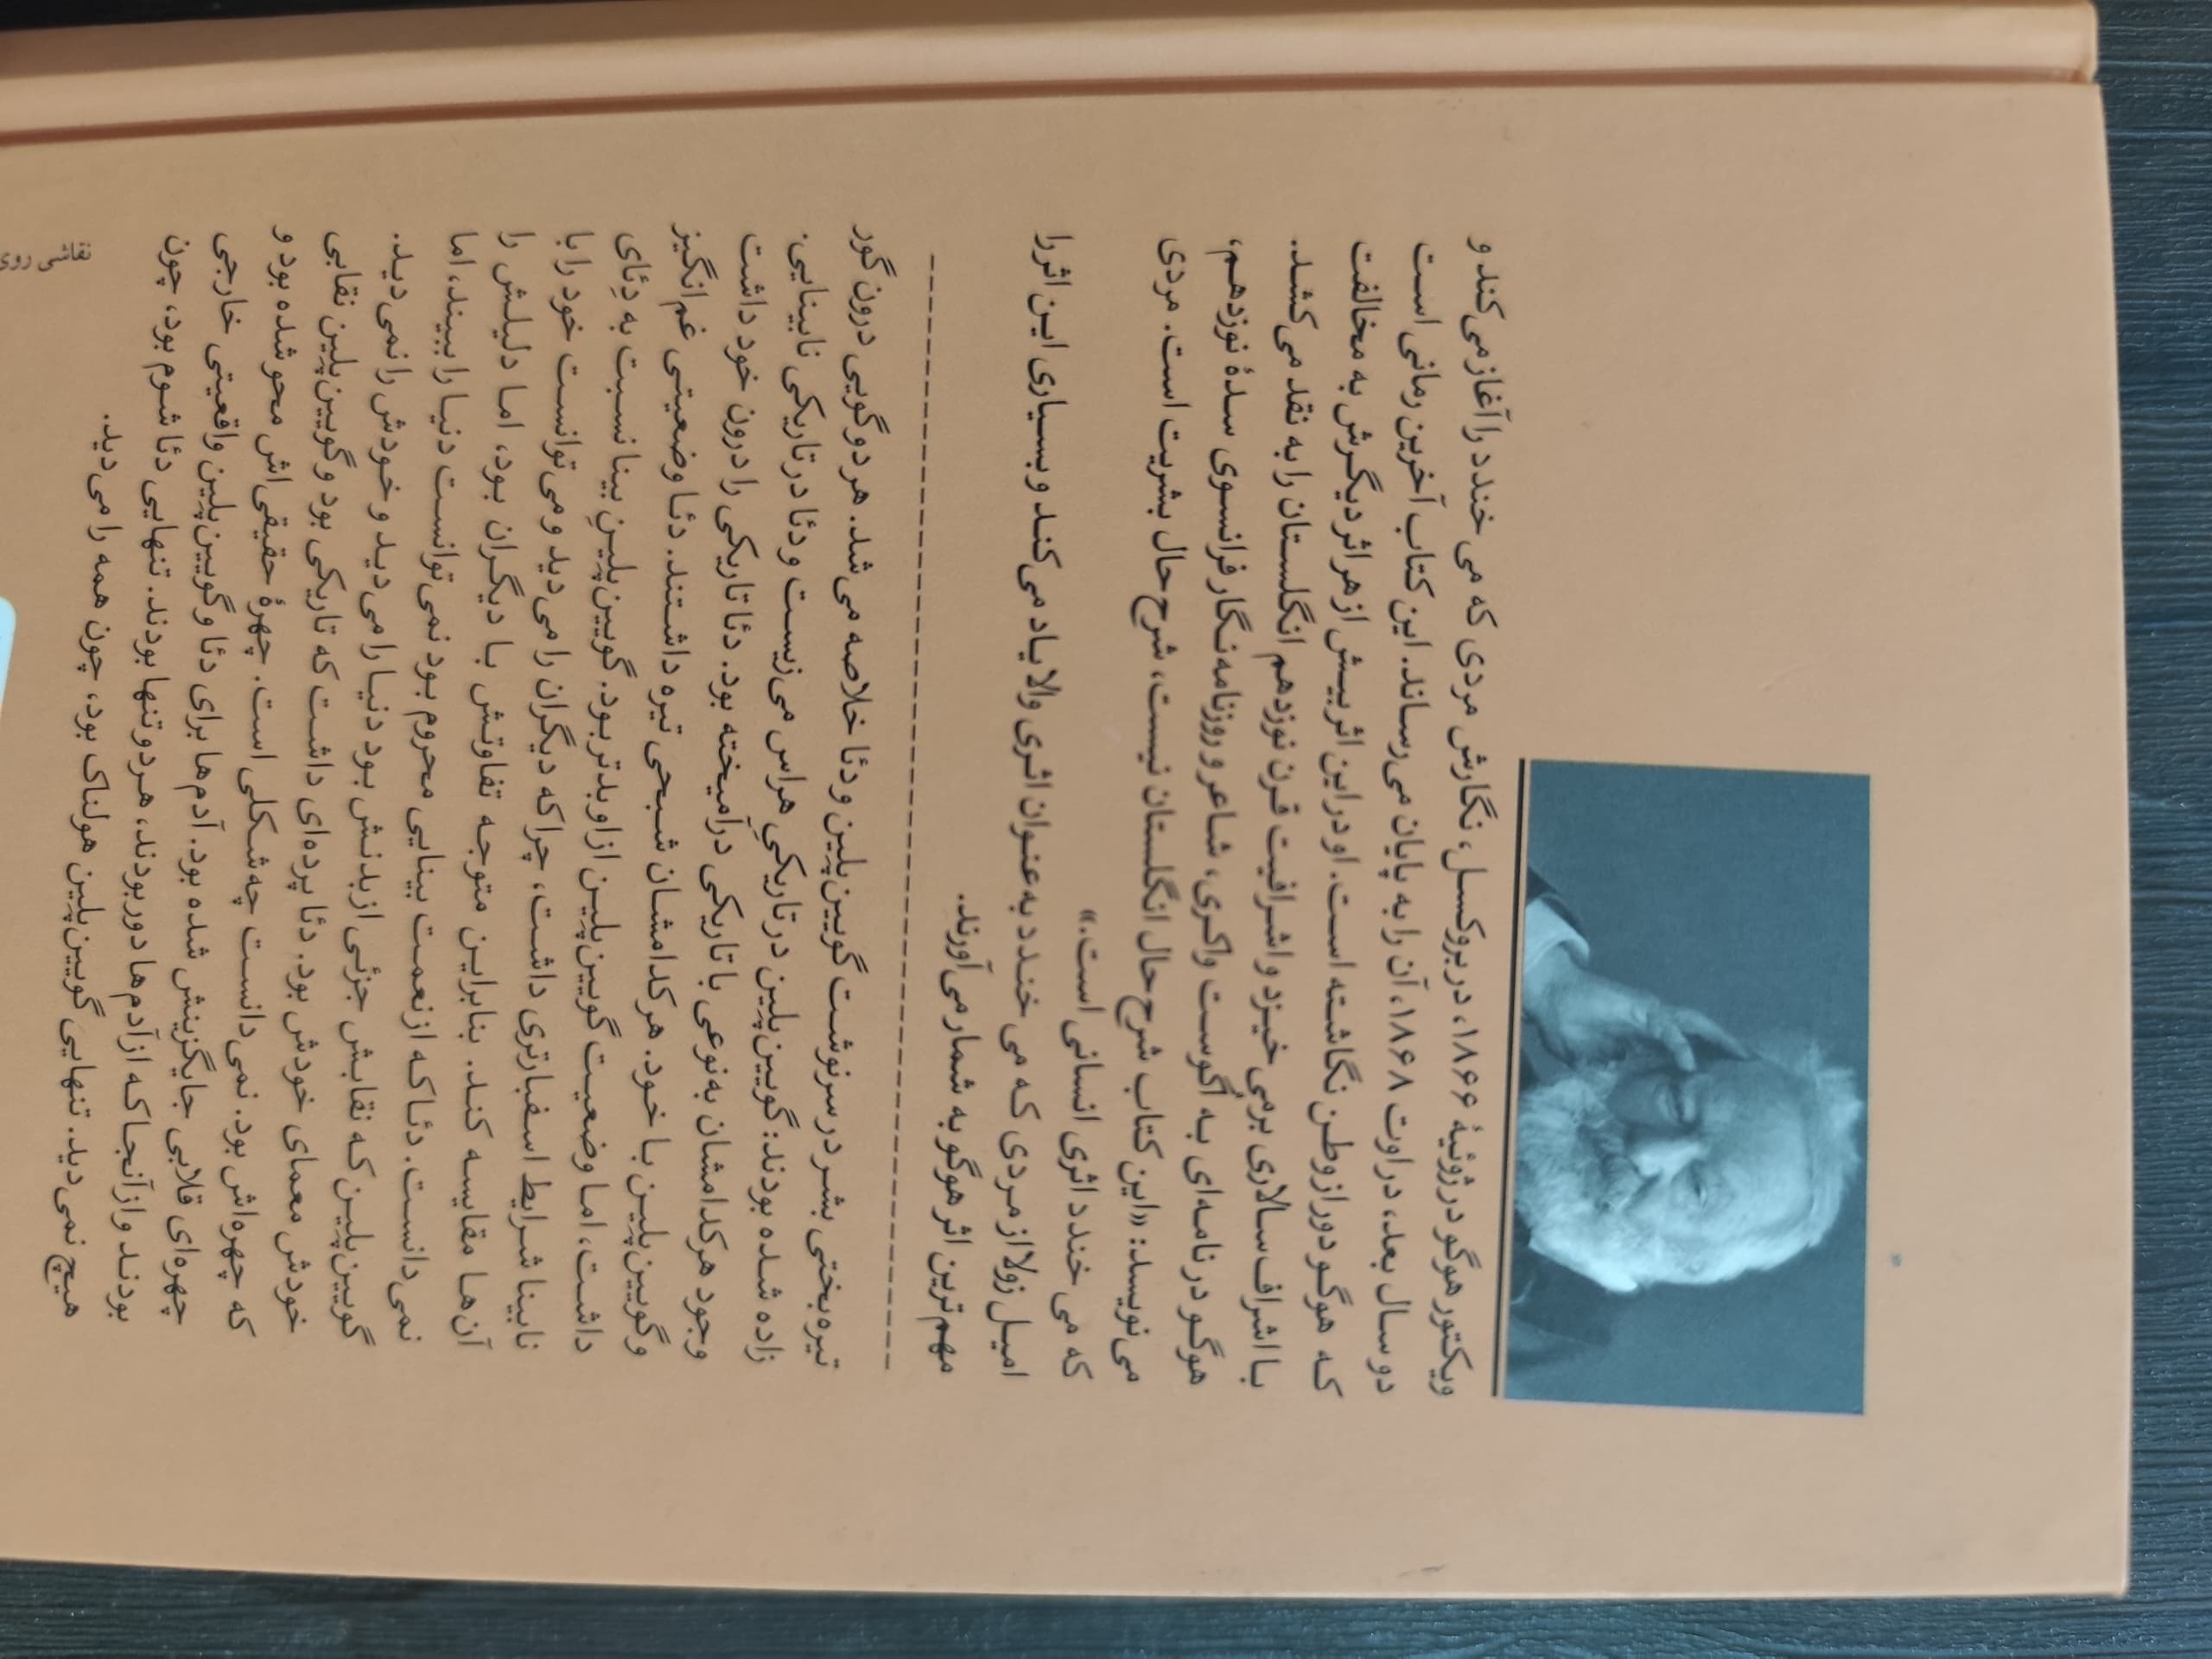 ویکتور هوگو در ژوئیهٔ ۱۸۶۶، در بروکسل، نگارش مردی که می خندد را آغاز می‌کند و
دو سال بعد، در اوت ۱۸۶۸، آن را به پایان می‌رساند. این کتاب آخرین رمانی است
کـه هوگـو دور از وطـن نگاشته اسـت. او در ایـن اثر بیـش از هر اثر دیگـرش به مخالفت
بـا اشراف‌سالاری برمی خیـزد و اشـرافیت قـرن نوزدهـم انگلسـتان را بـه نقد می‌کشـد.
هوگـو در نامـه‌ای بـه اُگوسـت واکـری، شاعـر و روزنامه‌نگار فرانسـوی سـدهٔ نوزدهـم،
می‌نویسـد: «ایـن کتـاب شرح‌حال انگلسـتان نیسـت، شرح‌حال بشریت اسـت. مردی
که می خندد اثری انسانی است.»
امیـل زولا از مـردی که می خنـدد به عنـوان اثـری والا یـاد می‌کنـد و بسـیاری ایـن اثر را
مهم‌ترین اثر هوگو به شمار می‌آورند.
تیره‌بختی بشـر در سرنوشـت گویین‌پلین و دئا خلاصه می‌شد. هر دو گویی درون گور
زاده شـده بودنـد: گویین‌پلیـن در تاریکـیِ هراس می‌زیسـت و دئـا در تاریکی نابینایی.
وجود هرکدامشان به‌نوعی با تاریکی درآمیخته بود. دئا تاریکی را درون خود داشت
و گویین‌پلیـن بـا خـود. هر کدامشـان شـبحی تیره داشـتند. دئـا وضعیتـی غم‌انگیز
داشـت، امـا وضعیـت گویین‌پلیـن از او بدتـر بـود. گویین‌پلیـنِ بینـا نسـبت بـه دِئـای
نابینـا شـرایط اسـفبارتری داشـت، چراکـه دیگـران را می‌دیـد و می‌توانسـت خـود را با
آن‌هـا مقایسـه کنـد. بنابرایـن متوجـه تفاوتـش بـا دیگـران بـود، امـا دلیلـش را
نمی‌دانسـت. دئـا کـه از نعمـت بینایـی محـروم بـود نمی‌توانسـت دنیـا را ببینـد، امـا
گویین‌پلیـن کـه نقابـش جزئی از بدنـش بـود دنیـا را می‌دیـد و خـودش را نمی‌دیـد.
خودش معمای خودش بود. دئا پرده‌ای داشت که تاریکی بود و گویین‌پلین نقابی
که چهره‌اش بود. نمی‌دانسـت چه شـکلی اسـت. چهرهٔ حقیقی‌اش محو شـده بود و
چهره‌ای قلابی جایگزینش شده بود. آدم‌ها برای دئا و گویین‌پلین واقعیتی خارجی
بودند و از آنجا که از آدم‌ها دور بودند، هـر دو تنها بودند. تنهایی دئا شـوم بود، چون
هیچ نمی‌دید. تنهایی گویین‌پلین هولناک بود، چون همه را می‌دید.
نقاشی روی